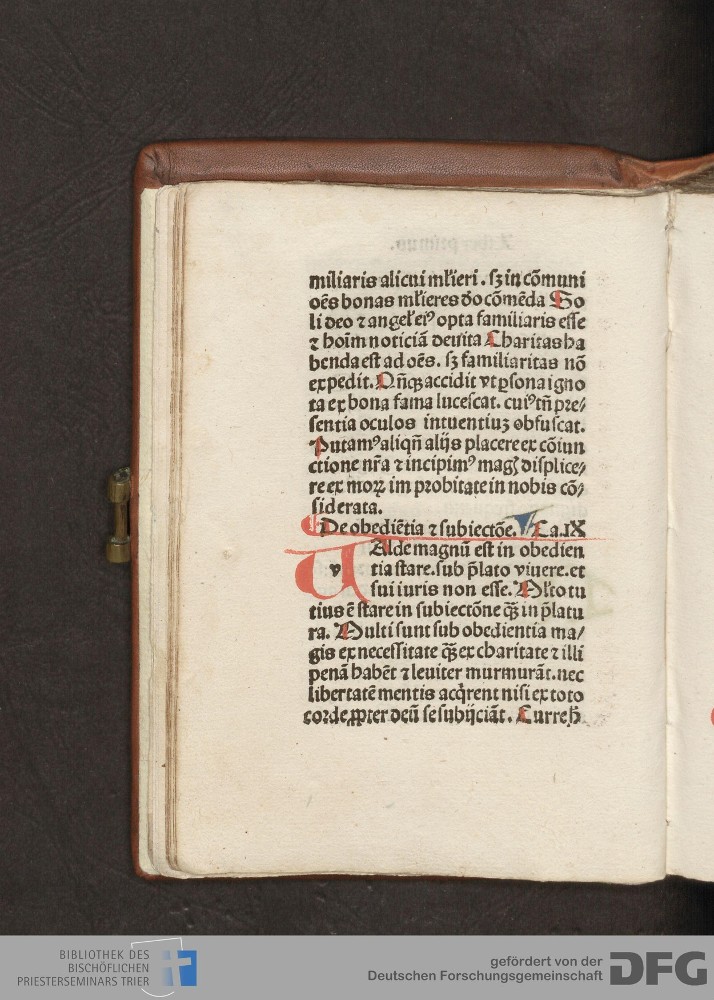 miliaris alicui mł̄ieri . sꝫ in cōmuni
oēs bonas mł̄ieres do cōmēda So
li deo ⁊ angeł eiꝰ opta familiaris esse
⁊ hoīm noticiā deuita Charitas ha
benda est ad oēs. sꝫ familiaritas nō
expedit. Qn̄qꝫ accidit vt ꝑsona igno
ta ex bona fama lucescat. cuiꝰ tn̄ pre⸗
sentia oculos intuentiuꝫ obfuscat.
Putamꝰ aliqn̄ alijs placere ex cōiun
ctione nr̄a ⁊ incipimꝰ magꝭ displice⸗
re ex moꝝ improbitate in nobis cō⸗
siderata.
De obediētia ⁊ subiectōe. Ca.IX
v Alde magnū est in obedien
tia stare. sub p̄lato viuere. et
sui iuris non esse. Mł̄to tu
tius ē stare in subiectōne qꝫ̄ in p̄latu
ra. Multi sunt sub obedientia ma⸗
gis ex necessitate qꝫ̄ ex charitate ⁊ illi
penā habēt ⁊ leuiter murmurāt. nec
libertatē mentis acq̇rent nisi ex toto
corde ꝓpter deū se subijciāt. Curre h̄
BIBLIOTHEK DES
BISCHÖFLICHEN
PRIESTERSEMINARS TRIER
gefördert von der
Deutschen Forschungsgemeinschaft DFG